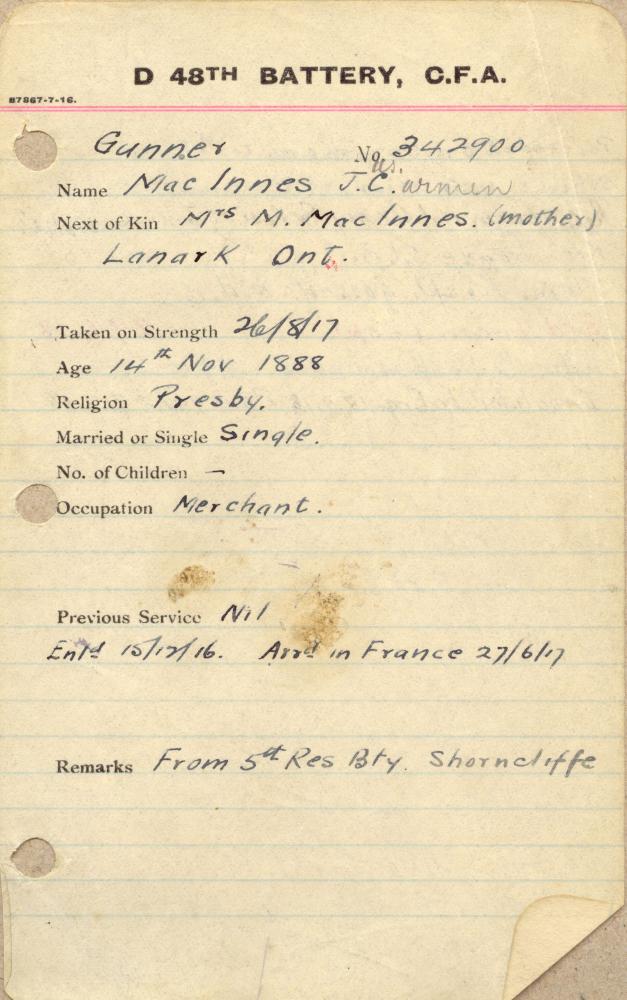 D 48TH BATTERY, C.F.A.
87867-7-16.
Gunner No. 342900
Name Mac Innes J.C.armen
Next of Kin Mrs M. Mac Innes. (mother)
Lanark Ont.
Taken on Strength 26/8/17
Age 14th Nov 1888
Religion Presby.
Married or Single Single.
No. of Children –
Occupation Merchant.
Previous Service Nil
Enld 15/12/16. Arrd in France 27/6/17
Remarks From 5th Res Bty. Shorncliffe